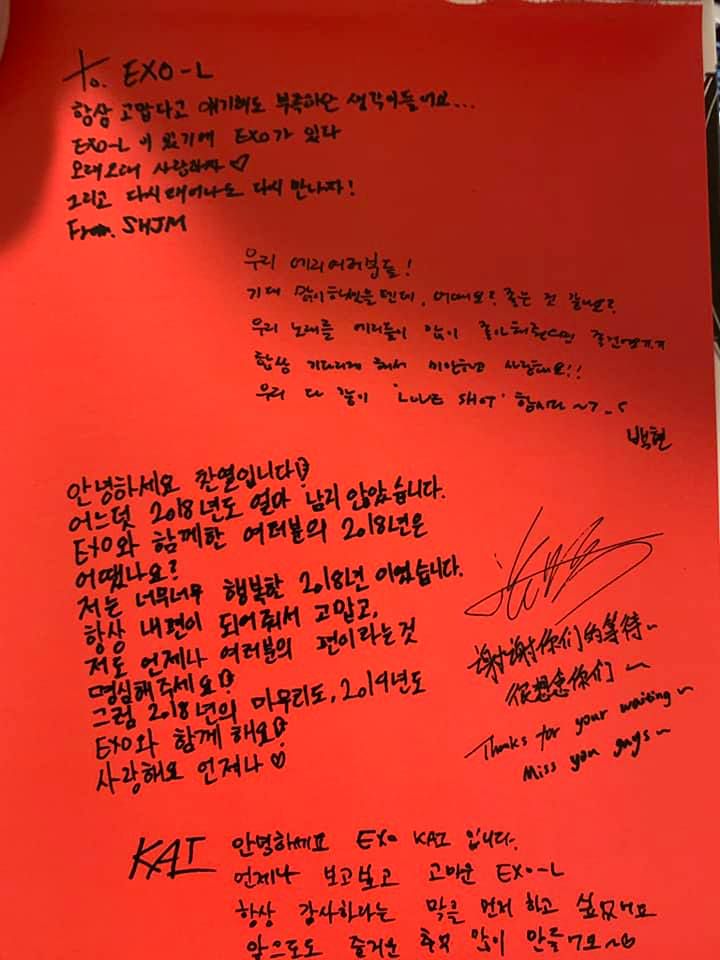 To. EXO-L
항상 고맙다고 얘기해도 부족하단 생각이들어요...
EXO-L 이 있기에 EXO가 있다
오래오래 사랑하자 ♡
그리고 다시태어나도 다시 만나자!
From. SHJM
우리 에리여러분들!
기대 많이하셨을텐데, 어때요? 좋은 것 같나요?
우리 노래를 에리들이 많이 좋아해줬으면 좋겠어요ㅠㅠ
항상 기다리게 해서 미안하고 사랑해요!!
우리 다 같이 'LOVE SHOT' 합시다 ~
백현
안녕하세요 찬열입니다
어느덧 2018년도 얼마 남지 않았습니다.
EXO와 함께한 여러분의 2018년은
어땠나요?
저는 너무너무 행복한 2018년 이였습니다.
항상 내편이 되어줘서 고맙고,
저도 언제나 여러분의 편이라는것
명심해주세요
그럼 2018년의 마무리도, 2019년도
EXO와 함께 해요
사랑해요 언제나 ♡
谢谢你们的等待~
很想念你们~
Thanks for your waiting~
Miss you guys~
KAI
안녕하세요 EXO KAI 입니다.
언제나 보고싶고 고마운 EXO-L
항상 감사하다는 말을 먼저 하고 싶었어요
앞으로도 즐거운 추억 많이 만들어요~